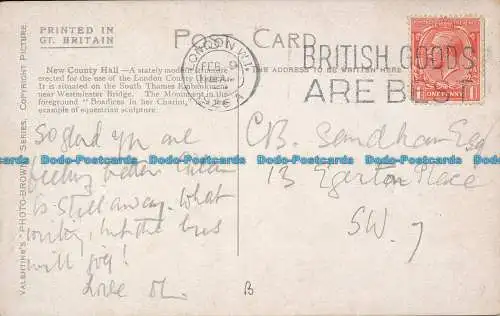 PRINTED IN
GT. BRITAIN
POST CARD
New County Hall—A stately modern structure
erected for the use of the London County
It is situated on the South Thames Embankment
near Westminster Bridge. The Monument in the
foreground "Boadicea in her Chariot," is a fine
example of equestrian sculpture.
THE ADDRESS TO BE WRITTEN HERE
VALENTINE'S "PHOTO-BROWN" SERIES, COPYRIGHT PICTURE.
LONDON
FEB
BRITISH GOODS
ARE BEST
ONE PENNY
So glad you are
feeling better
is still away. What
but the
will give!
Love
C.B. Sandham Esq
13 Egerton Place
S.W. 7
B
Bodo-Postcards